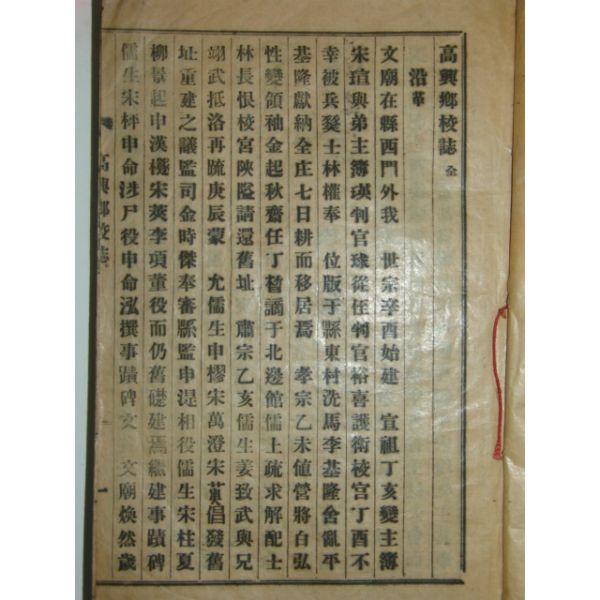 高興鄉校誌 全
沿革
文廟在縣西門外我 世宗辛酉始建 宣祖丁亥變主簿
宋瑄與弟主簿瑛判官球從任判官裕喜護衛校宮丁酉不
幸被兵燹士林權奉 位版于縣東村洗馬李基隆舍亂平
基隆獻納全庄七日耕而移居焉 孝宗乙未値營將白弘
性變領袖金起秋齋任丁暜謫于北邊館儒上疏求解配士
林長恨校宮陜隘請還舊址 肅宗乙亥儒生姜致武與兄
翊武抵洛再䟽庚辰蒙 允儒生申樛宋萬澄宋 倡發舊
址重建之議監司金時傑奉審縣監申湜相役儒生宋柱夏
柳景起申漢 宋 李項董役而仍舊礎建焉繼建事蹟碑
儒生宋枰申命涉尸役申命泓撰事蹟碑文 文廟煥然歲
高興鄉校誌
一